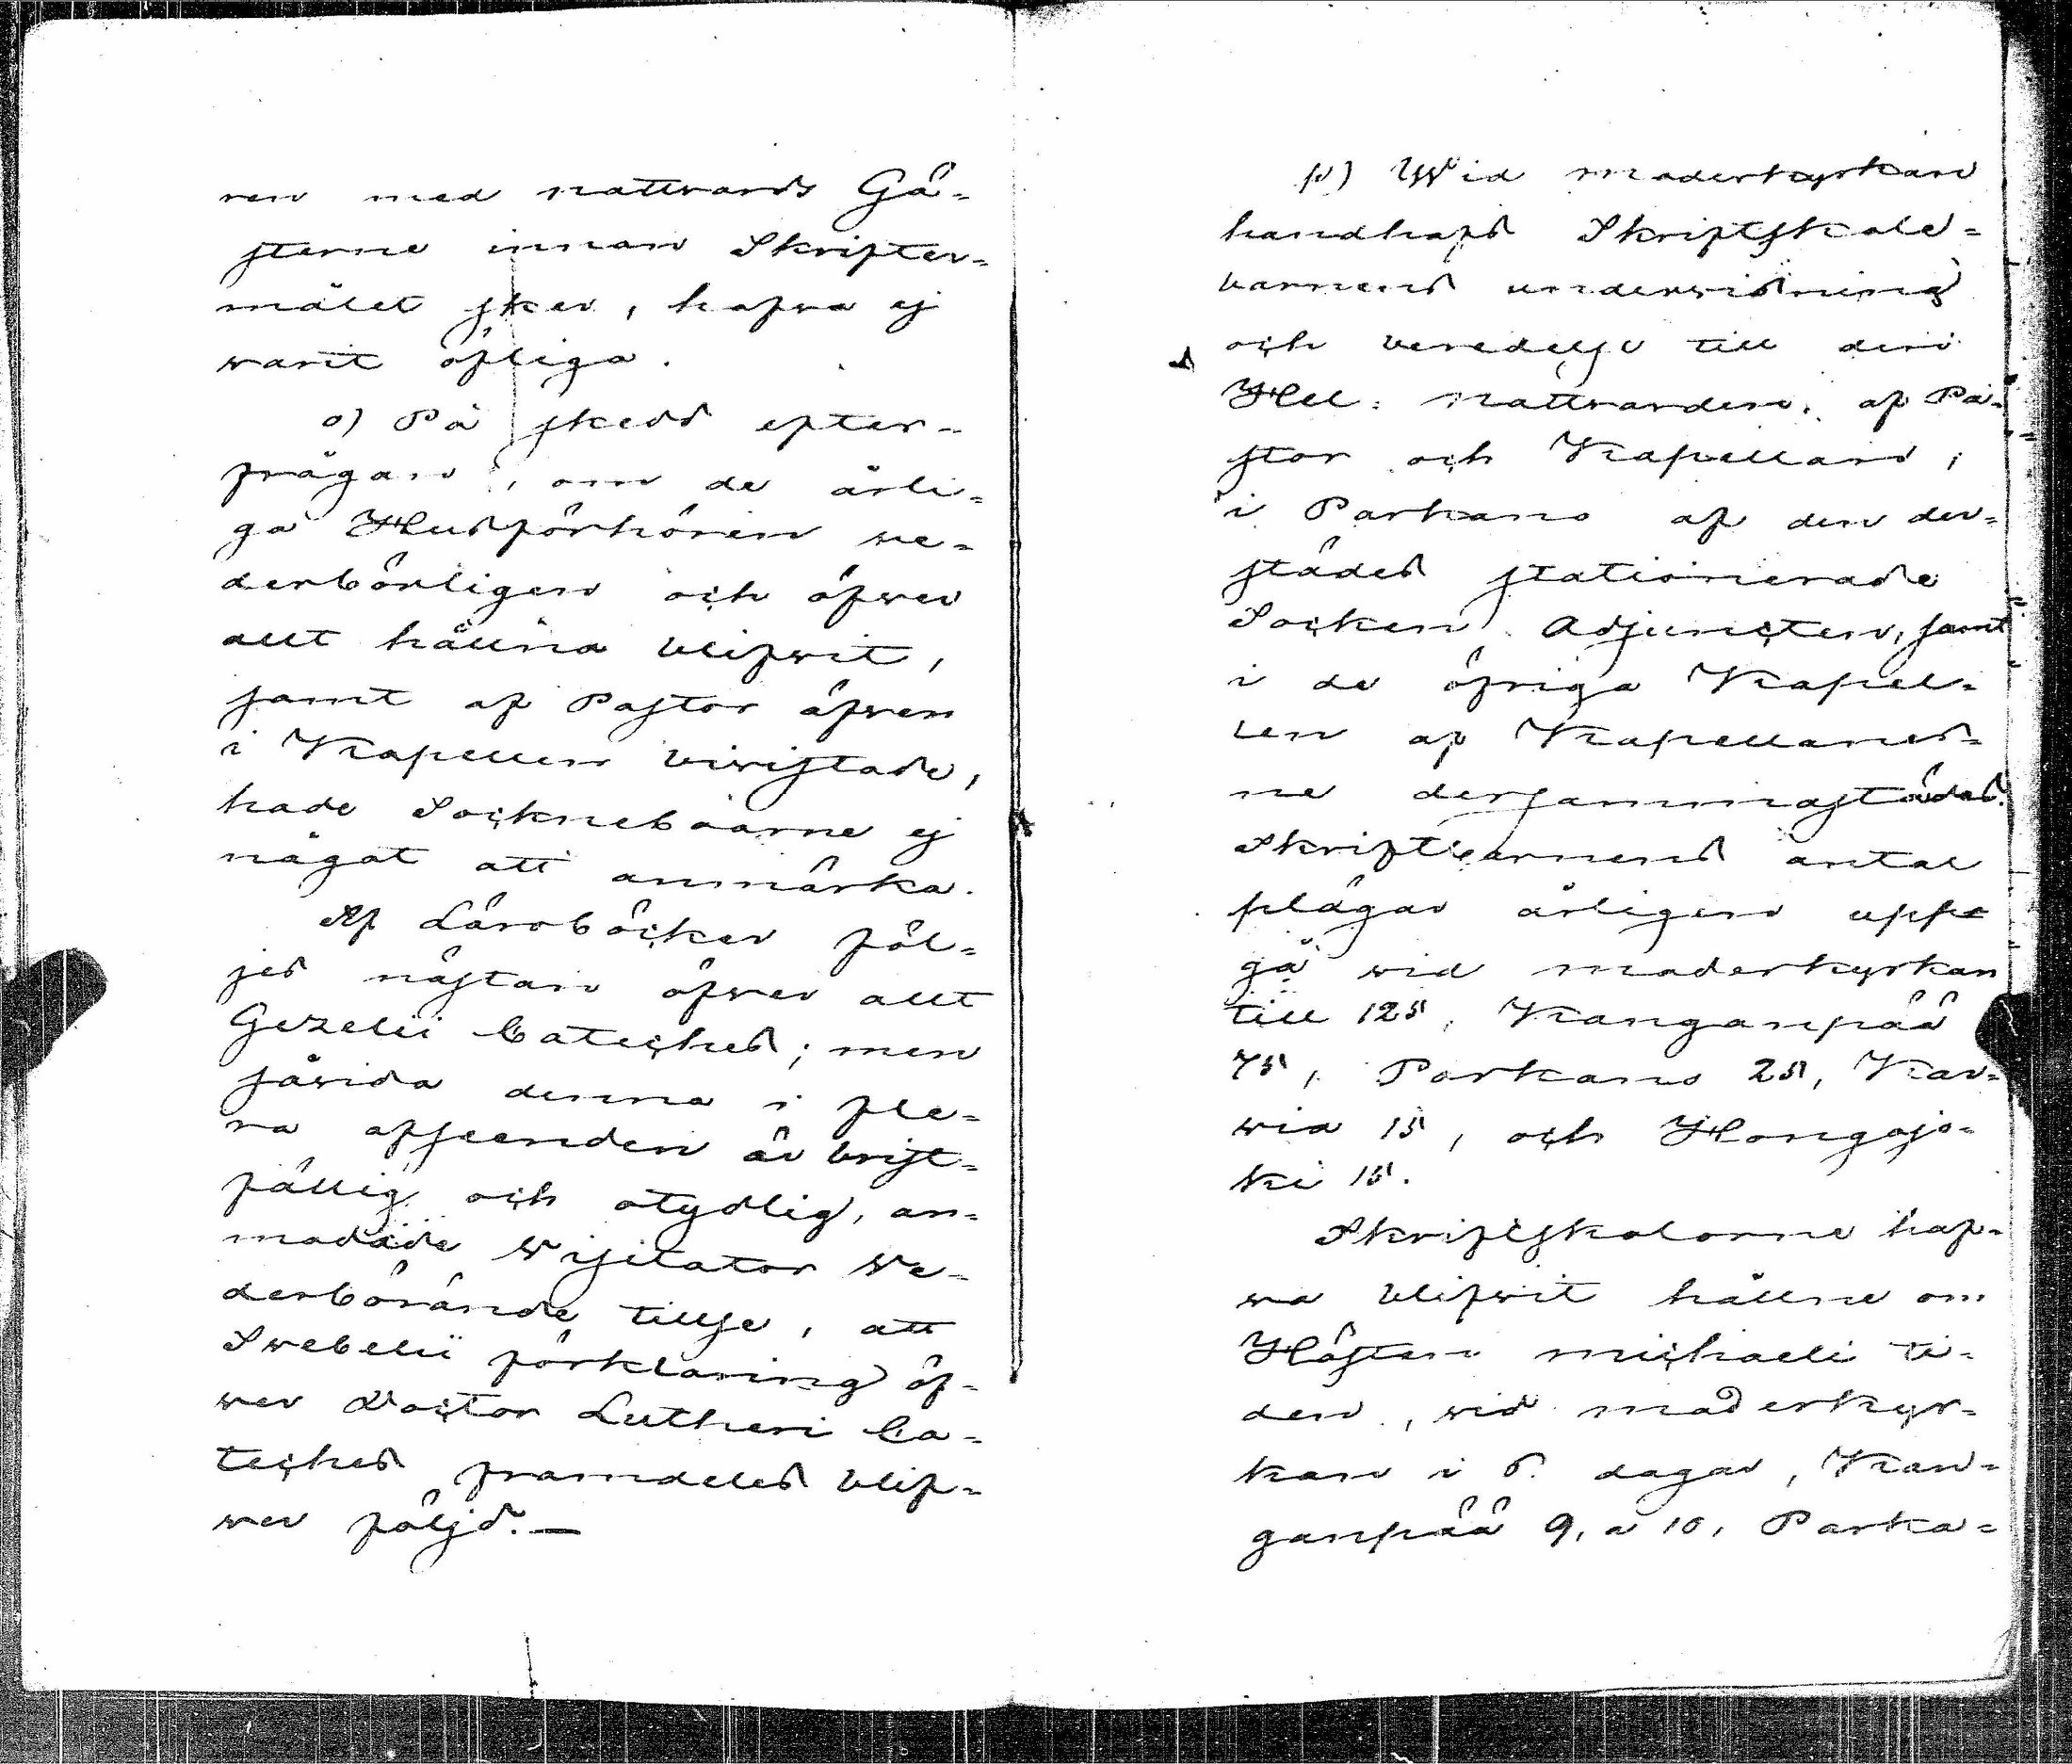 ren med nattvards Gä-
sterne innan Skrifter-
målet sker, hafva ej
warit öfliga.
o) På skedd efter-
frågan, om de årli-
ga Husförhören we-
derbörligen och öfwer
allt hållna blifwit,
samt af Pastor äfwen
i Kapellen bivistade,
hade Sockneboarne ej
något att anmärka.
Af Läroböcker föl-
jes nästan öfwer allt
Gezelii Cateches; men
såvida denna i fle-
ra afseenden är brist-
fällig och otydlig, an-
modade Visitator We-
derbörande tillse, att
Swebelii förklaring öf-
wer Doctor Lutheri Ca-
teches framdeles blif-
wer följd. —
p) Wid moderkyrkan
handhafs Skriftskole-
barnens underwisning
och beredelse till den
Hel: Nattvarden, af Pa-
stor och Kapellan,
i Parkano af den der-
städes stationerade
Socken Adjuncten, samt
i de öfriga Kapel-
len af Kapellaner-
ne dersammastädes.
Skriftbarnens antal
plägar årligen upp-
gå wid moderkyrkan
till 125, Kanganpää
75, Parkano 25, Kar-
wia 15, och Hongojo-
ki 15.
Skriftskolorne haf-
wa blifwit hållne om
Hösten michaeli ti-
den, wid moderkyr-
kan i 6. dagar, Kan-
ganpää 9, a 10, Parka-